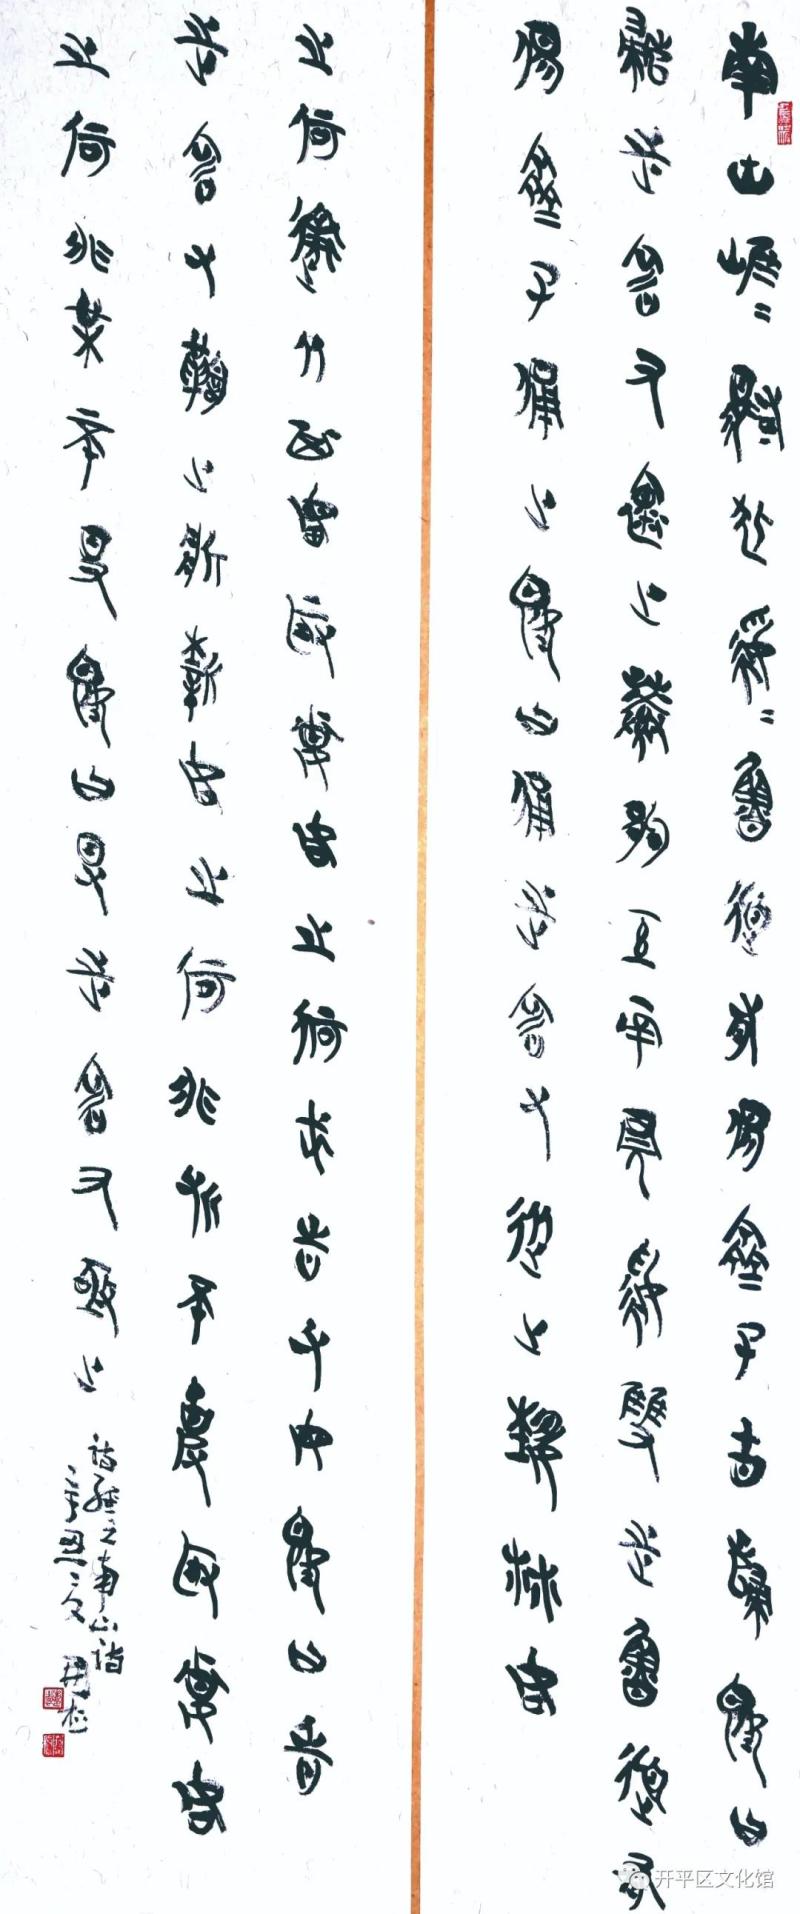 南山崔崔雄狐綏綏魯道有蕩齊子由歸既曰
歸止曷又懷止葛屨五兩冠緌雙止魯道有
蕩齊子庸止既曰庸止曷又從止蓺麻如
之何衡從其畝取妻如之何必告父母既曰告
止曷又鞠止析薪如之何匪斧不克取妻如
之何匪媒不得既曰得止曷又極止
詩經之南山詩
辛丑之夏
开平区文化馆